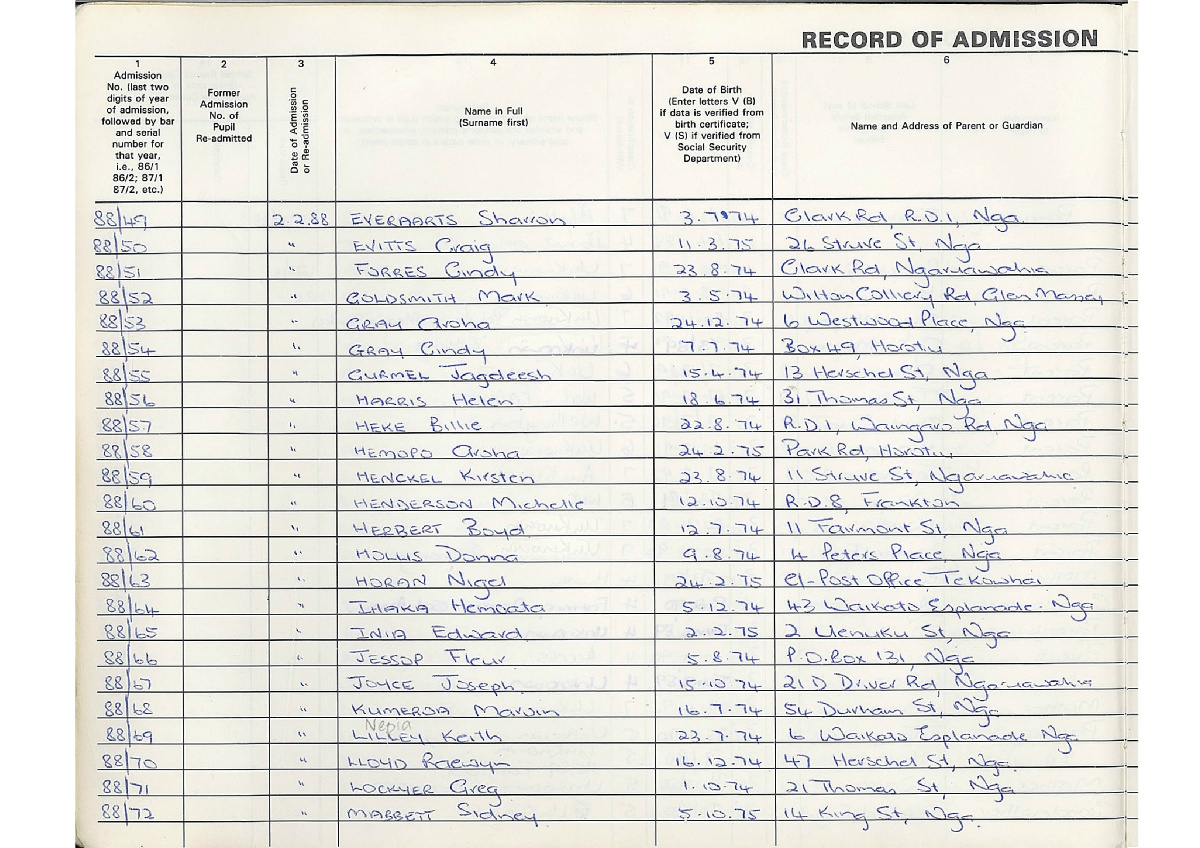 RECORD OF ADMISSION
1 2 3 4 5 6
Admission No. (last two digits of year of admission, followed by bar and serial number for that year, i.e., 86/1 86/2; 87/1 87/2, etc.)
Former Admission No. of Pupil Re-admitted
Date of Admission or Re-admission
Name in Full (Surname first)
Date of Birth (Enter letters V (B) if data is verified from birth certificate; V (S) if verified from Social Security Department)
Name and Address of Parent or Guardian
88/49 2.2.88 EVERAARTS Sharron 3.7.74 Clark Rd, R.D.1, Nga.
88/50 " EVITTS Craig 11.3.75 26 Struve St, Nga
88/51 " FORRES Cindy 23.8.74 Clark Rd, Ngaruawahia
88/52 " GOLDSMITH Mark 3.5.74 Wilton Colliery Rd, Glen Massey
88/53 " GRAY Aroha 24.12.74 6 Westwood Place, Nga
88/54 " GRAY Cindy 7.7.74 Box 49, Horotiu
88/55 " GURMEL Jagdeesh 15.4.74 13 Herschel St, Nga
88/56 " HARRIS Helen 18.6.74 31 Thomas St, Nga
88/57 " HEKE Billie 22.8.74 R.D.1, Waingaro Rd, Nga
88/58 " HEMOPO Aroha 24.2.75 Park Rd, Horotiu
88/59 " HENCKEL Kirsten 23.8.74 11 Struve St, Ngaruawahia
88/60 " HENDERSON Michelle 12.10.74 R.D.8, Frankton
88/61 " HERBERT Boyd 12.7.74 11 Fairmont St, Nga
88/62 " HOLLIS Donna 9.8.74 4 Peters Place, Nga
88/63 " HORAN Nigel 24.2.75 Cl-Post Office Tekowhai
88/64 " IHAKA Hemoata 5.12.74 43 Waikato Esplanade. Nga
88/65 " INIA Edward 2.2.75 2 Uenuku St, Nga
88/66 " JESSOP Fleur 5.8.74 P.O.Box 131, Nga
88/67 " JOYCE Joseph 15.10.74 21 D Driver Rd, Ngaruawahia
88/68 " KUMEROA Marvin 16.7.74 54 Durham St, Nga
Nepia
88/69 " LILLEY Keith 23.7.74 6 Waikato Esplanade Nga
88/70 " LLOYD Raewyn 16.12.74 47 Herschel St, Nga
88/71 " LOCKYER Greg 1.10.74 21 Thomas St, Nga
88/72 " MABBETT Sidney 5.10.75 14 King St, Nga.